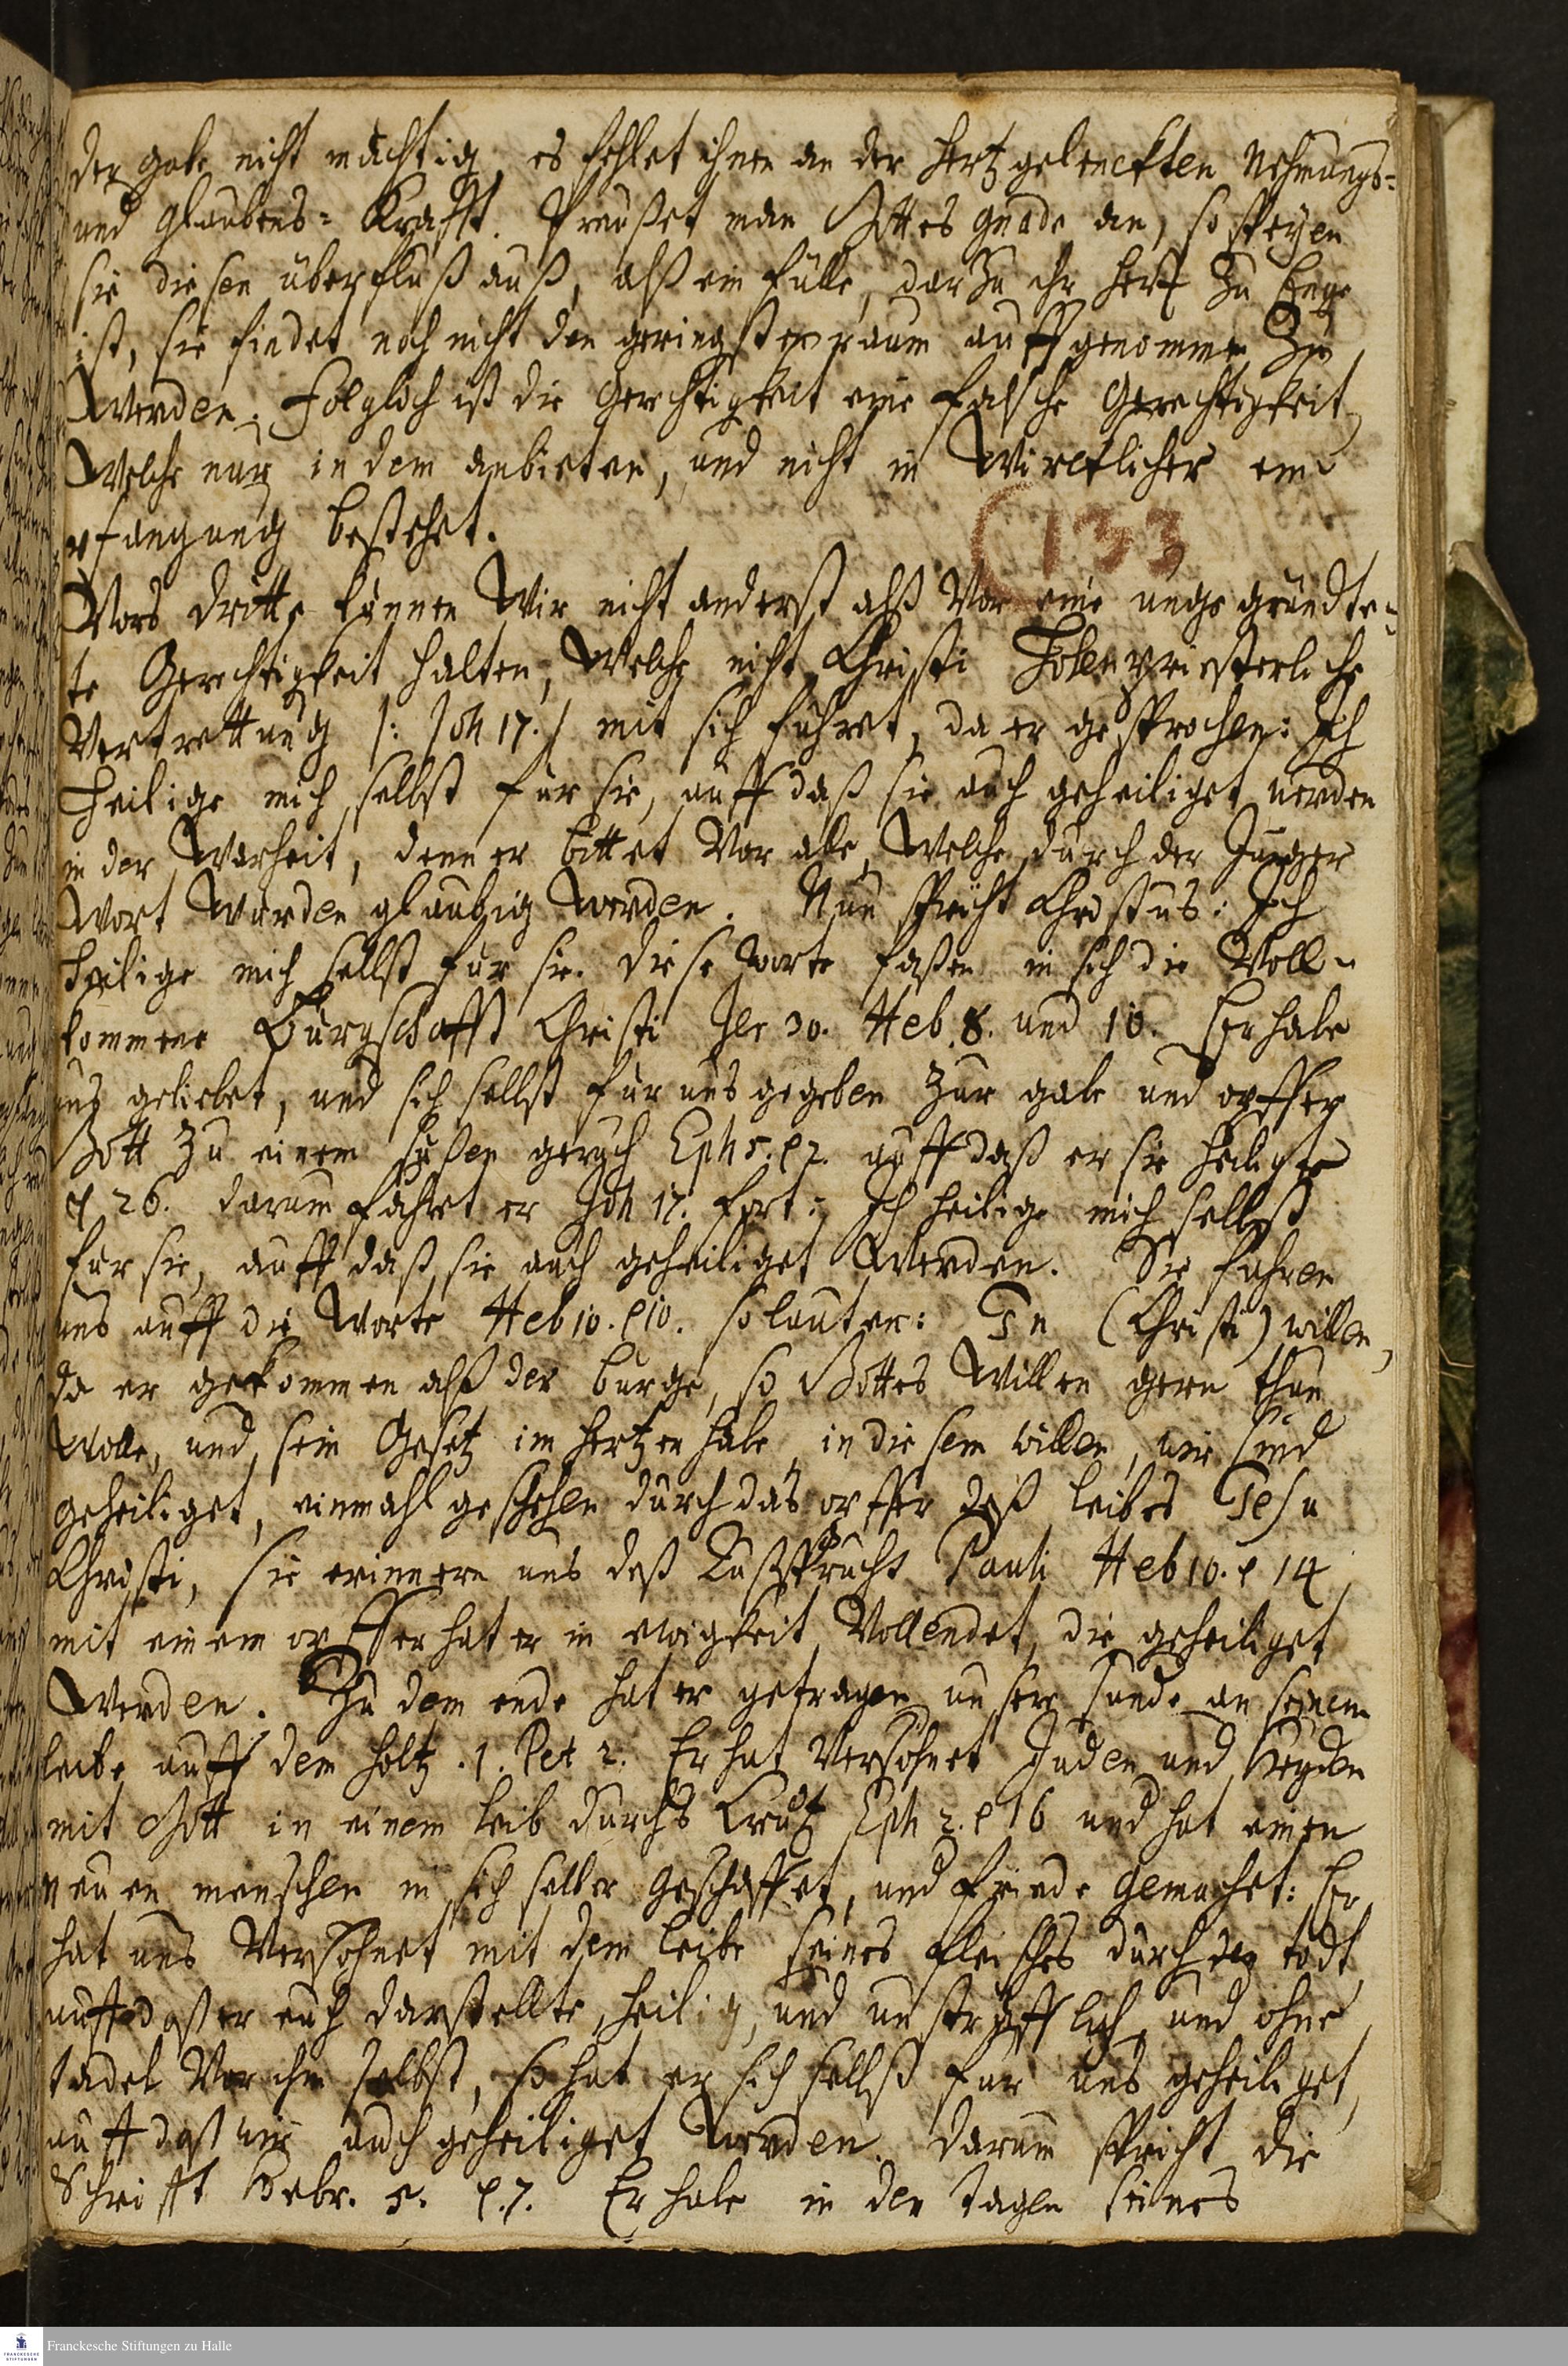 der gabe nicht mächtig, es fehlet ihnen an der hertzgelenckten Nehmungs-
und Glaubens-Krafft. Preußet man Gottes gnade an, so speyen
sie diesen überfluß auß, alß ein fülle, dar zu ihr hertz zu Enge
ist, sie findet noch nicht den geringsten raum auffgenommen zu
werden. Folglich ist die Gerechtigkeit eine falsche Gerechtigkeit,
Welche nur in dem anbieten, und nicht in Wircklicher em-
pfangung bestehet.
(133
Vors dritte können Wir nicht anderst alß Vor eine ungegründte-
te Gerechtigkeit halten, Welche nicht Christi Hohenpriesterliche
Vertrettung /: Joh 17. / mit sich führet, da er gesprochen: Ich
Heilige mich selbst für sie, auff daß sie auch geheiliget werden
in der Warheit, denn er bittet Vor alle, Welche durch der Jünger
Wort würden glaubig werden. Nun spricht Christus: Ich
heilige mich selbst für sie. Diese worte faßen in sich die Voll-
kommene Bürgschafft Christi Jer 30. Heb. 8. und 10. Er habe
uns geliebet, und sich selbst für uns gegeben zur gabe und opffer
Gott zu einem süßen geruch Eph 5. 2. auff daß er sie heiligte
26. darum fähret er Joh 17. fort: Ich heilige mich selbst
für sie, auff daß sie auch geheiliget Werden. Sie führen
uns auff die Worte Heb 10. 10. so lauten: In (Christi) willen,
da er gekommen alß der bürge, so Gottes Willen gern thun
Wolle, und sein Gesetz im hertzen habe, in diesem willen, wir sind
geheiliget, einmahl geschehen durch das opffer deß leibes Jesu
Christi, sie erinnern uns deß Außspruchs Pauli Heb 10. 14
mit einem opffer hat er in ewigkeit Vollendet, die geheiliget
Werden. Zu dem ende hat er getragen unsere sünde an seinem
leibe auff dem holtz. 1. Pet 2. Er hat Versöhnet Juden und Heyden
mit Gott in einem leib durchs Creutz Eph 2. 16 und hat einen
neuen menschen in sich selber geschaffet, und friede gemachet: Er
hat uns Versöhnet mit dem leibe seines fleisches durch den todt
auff daß er euch darstellte, heilig, und unsträfflich, und ohne
tadel Vor ihm selbst, so hat er sich selbst für uns geheiliget,
auff daß wir auch geheiliget werden. Darum spricht die
Schrifft Hebr. 5. 7. Er habe in den tagen seines
Franckesche Stiftungen zu Halle